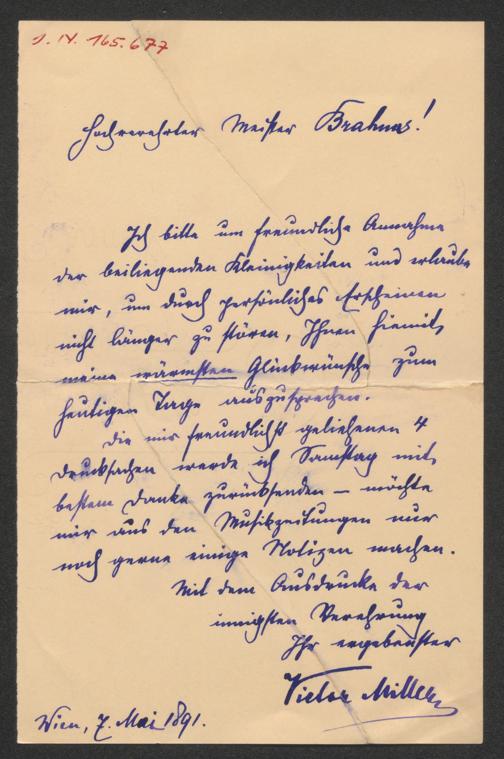 J. N. 165.677
Hochverehrter Meister Brahms!
Ich bitte um freundliche Annahme
der beiliegenden Kleinigkeiten und erlaube
mir, um durch persönliches Erscheinen
nicht länger zu stören, Ihnen hiemit
meine wärmsten Glückwünsche zum
heutigen Tage auszusprechen.
Die mir freundlichst geliehenen 4
Drucksachen werde ich Samstag mit
bestem Danke zurücksenden – möchte
mir aus den Musikzeitungen nur
noch gerne einige Notizen machen.
Mit dem Ausdrucke der
innigsten Verehrung
Ihr ergebenster
Victor Miller
Wien, 7. Mai 1891.